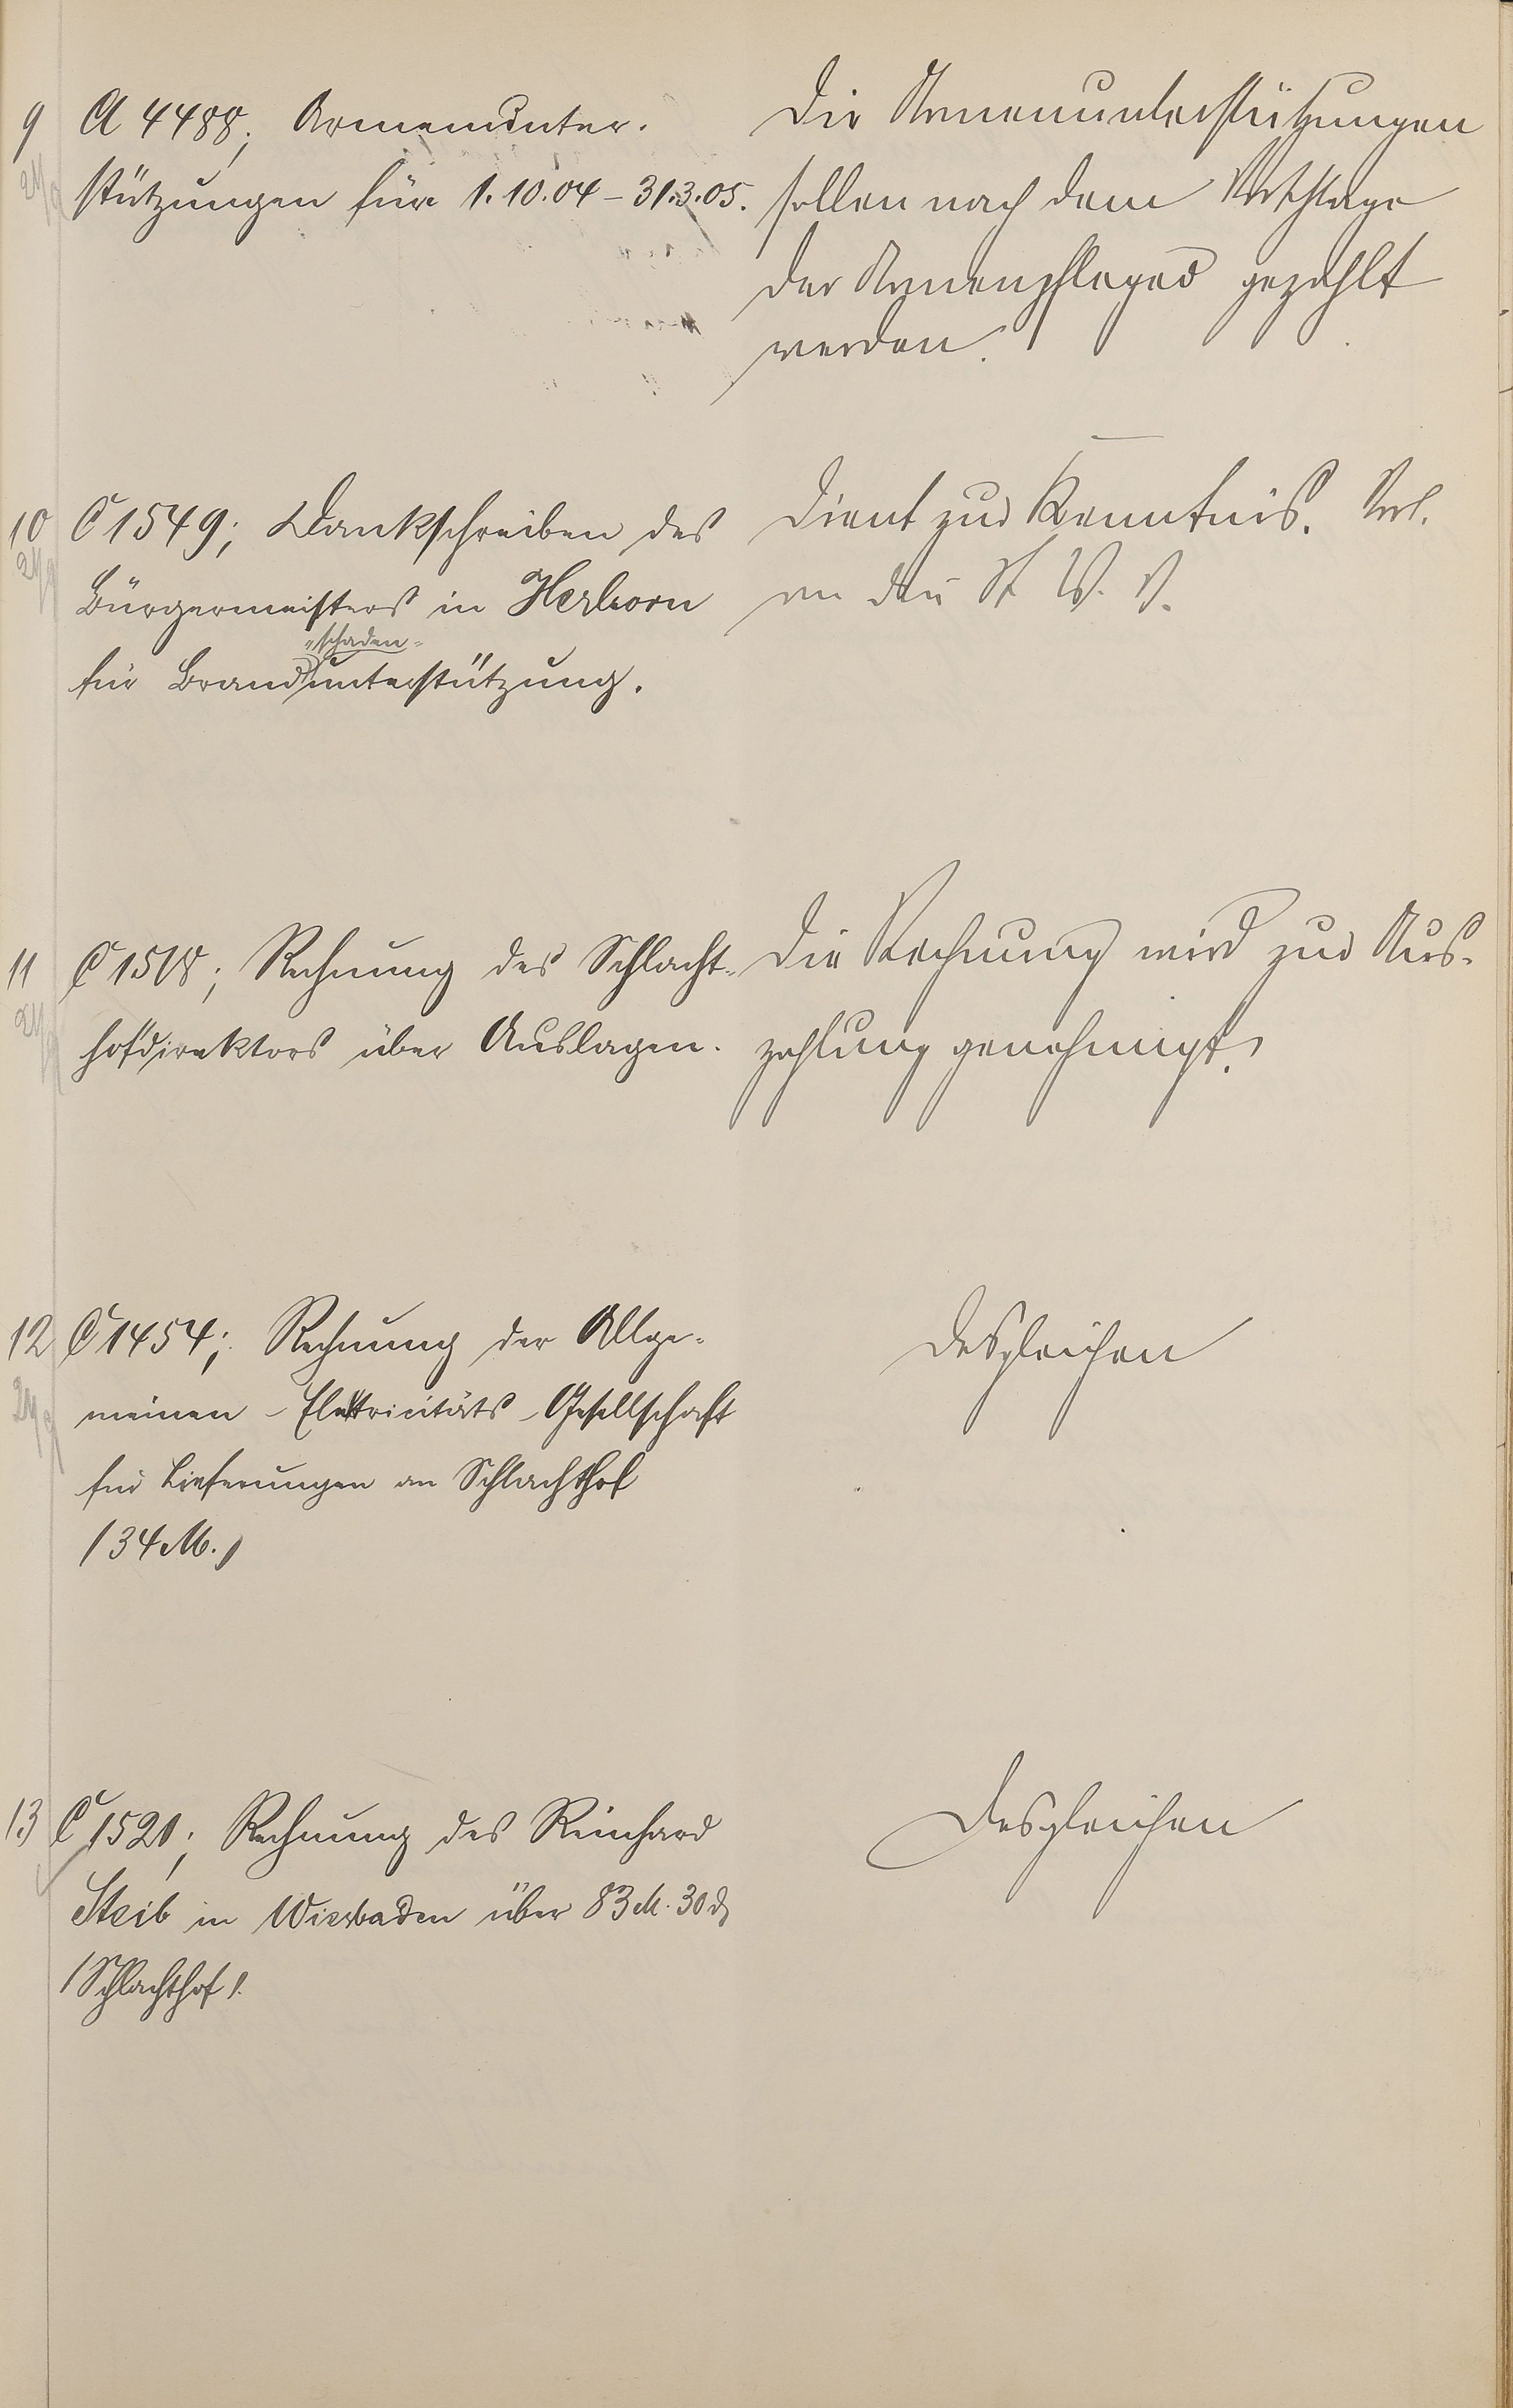 9 A 4488; Armenunter-
stützungen für 1.10.04 - 31.3.05.
Die Armenunterstützungen
sollen nach dem Vorschlage
der Armenpfleger gezahlt
werden.
10 C 1549; Dankschreiben des
Bürgermeisters in Herborn
"schaden"
für Brandunterstützung.
Dient zur Kenntnis.
an die St. V. V.
11 C 1518; Rechnung des Schlacht-
hofdirektors über Auslagen.
Die Rechnung wird zur Aus-
zahlung genehmigt.
12 C 1454; Rechnung der Allge-
meinen-Elektricitäts-Gesellschaft
für Lieferungen an Schlachthof
(34 M.)
Desgleichen
13 C 1521; Rechnung des Reinhard
Steib in Wiesbaden über 83 M. 30 ₰
(Schlachthof).
Desgleichen